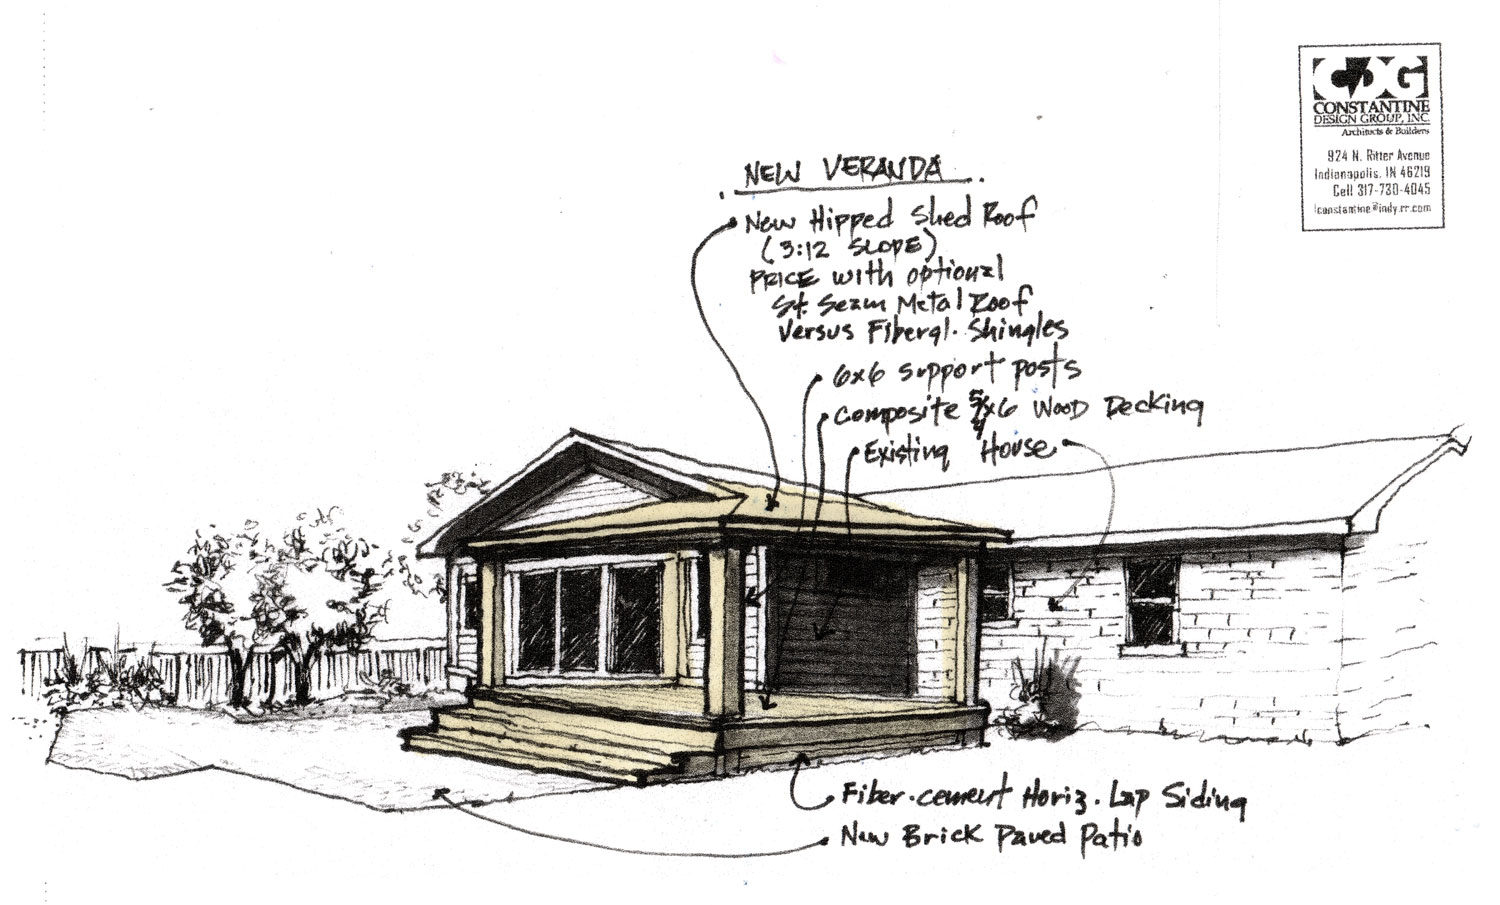 CDG
CONSTANTINE
DESIGN GROUP, INC.
Architects & Builders
924 N. Ritter Avenue
Indianapolis, IN 46219
Cell 317-730-4045
lconstantine@indy.rr.com
NEW VERANDA
New Hipped Shed Roof
(3:12 SLOPE)
PRICE with optional
St. Seam Metal Roof
Versus Fibergl. Shingles
6x6 support posts
Composite 5/4x6 Wood Decking
Existing House
Fiber-cement Horiz. Lap Siding
New Brick Paved Patio